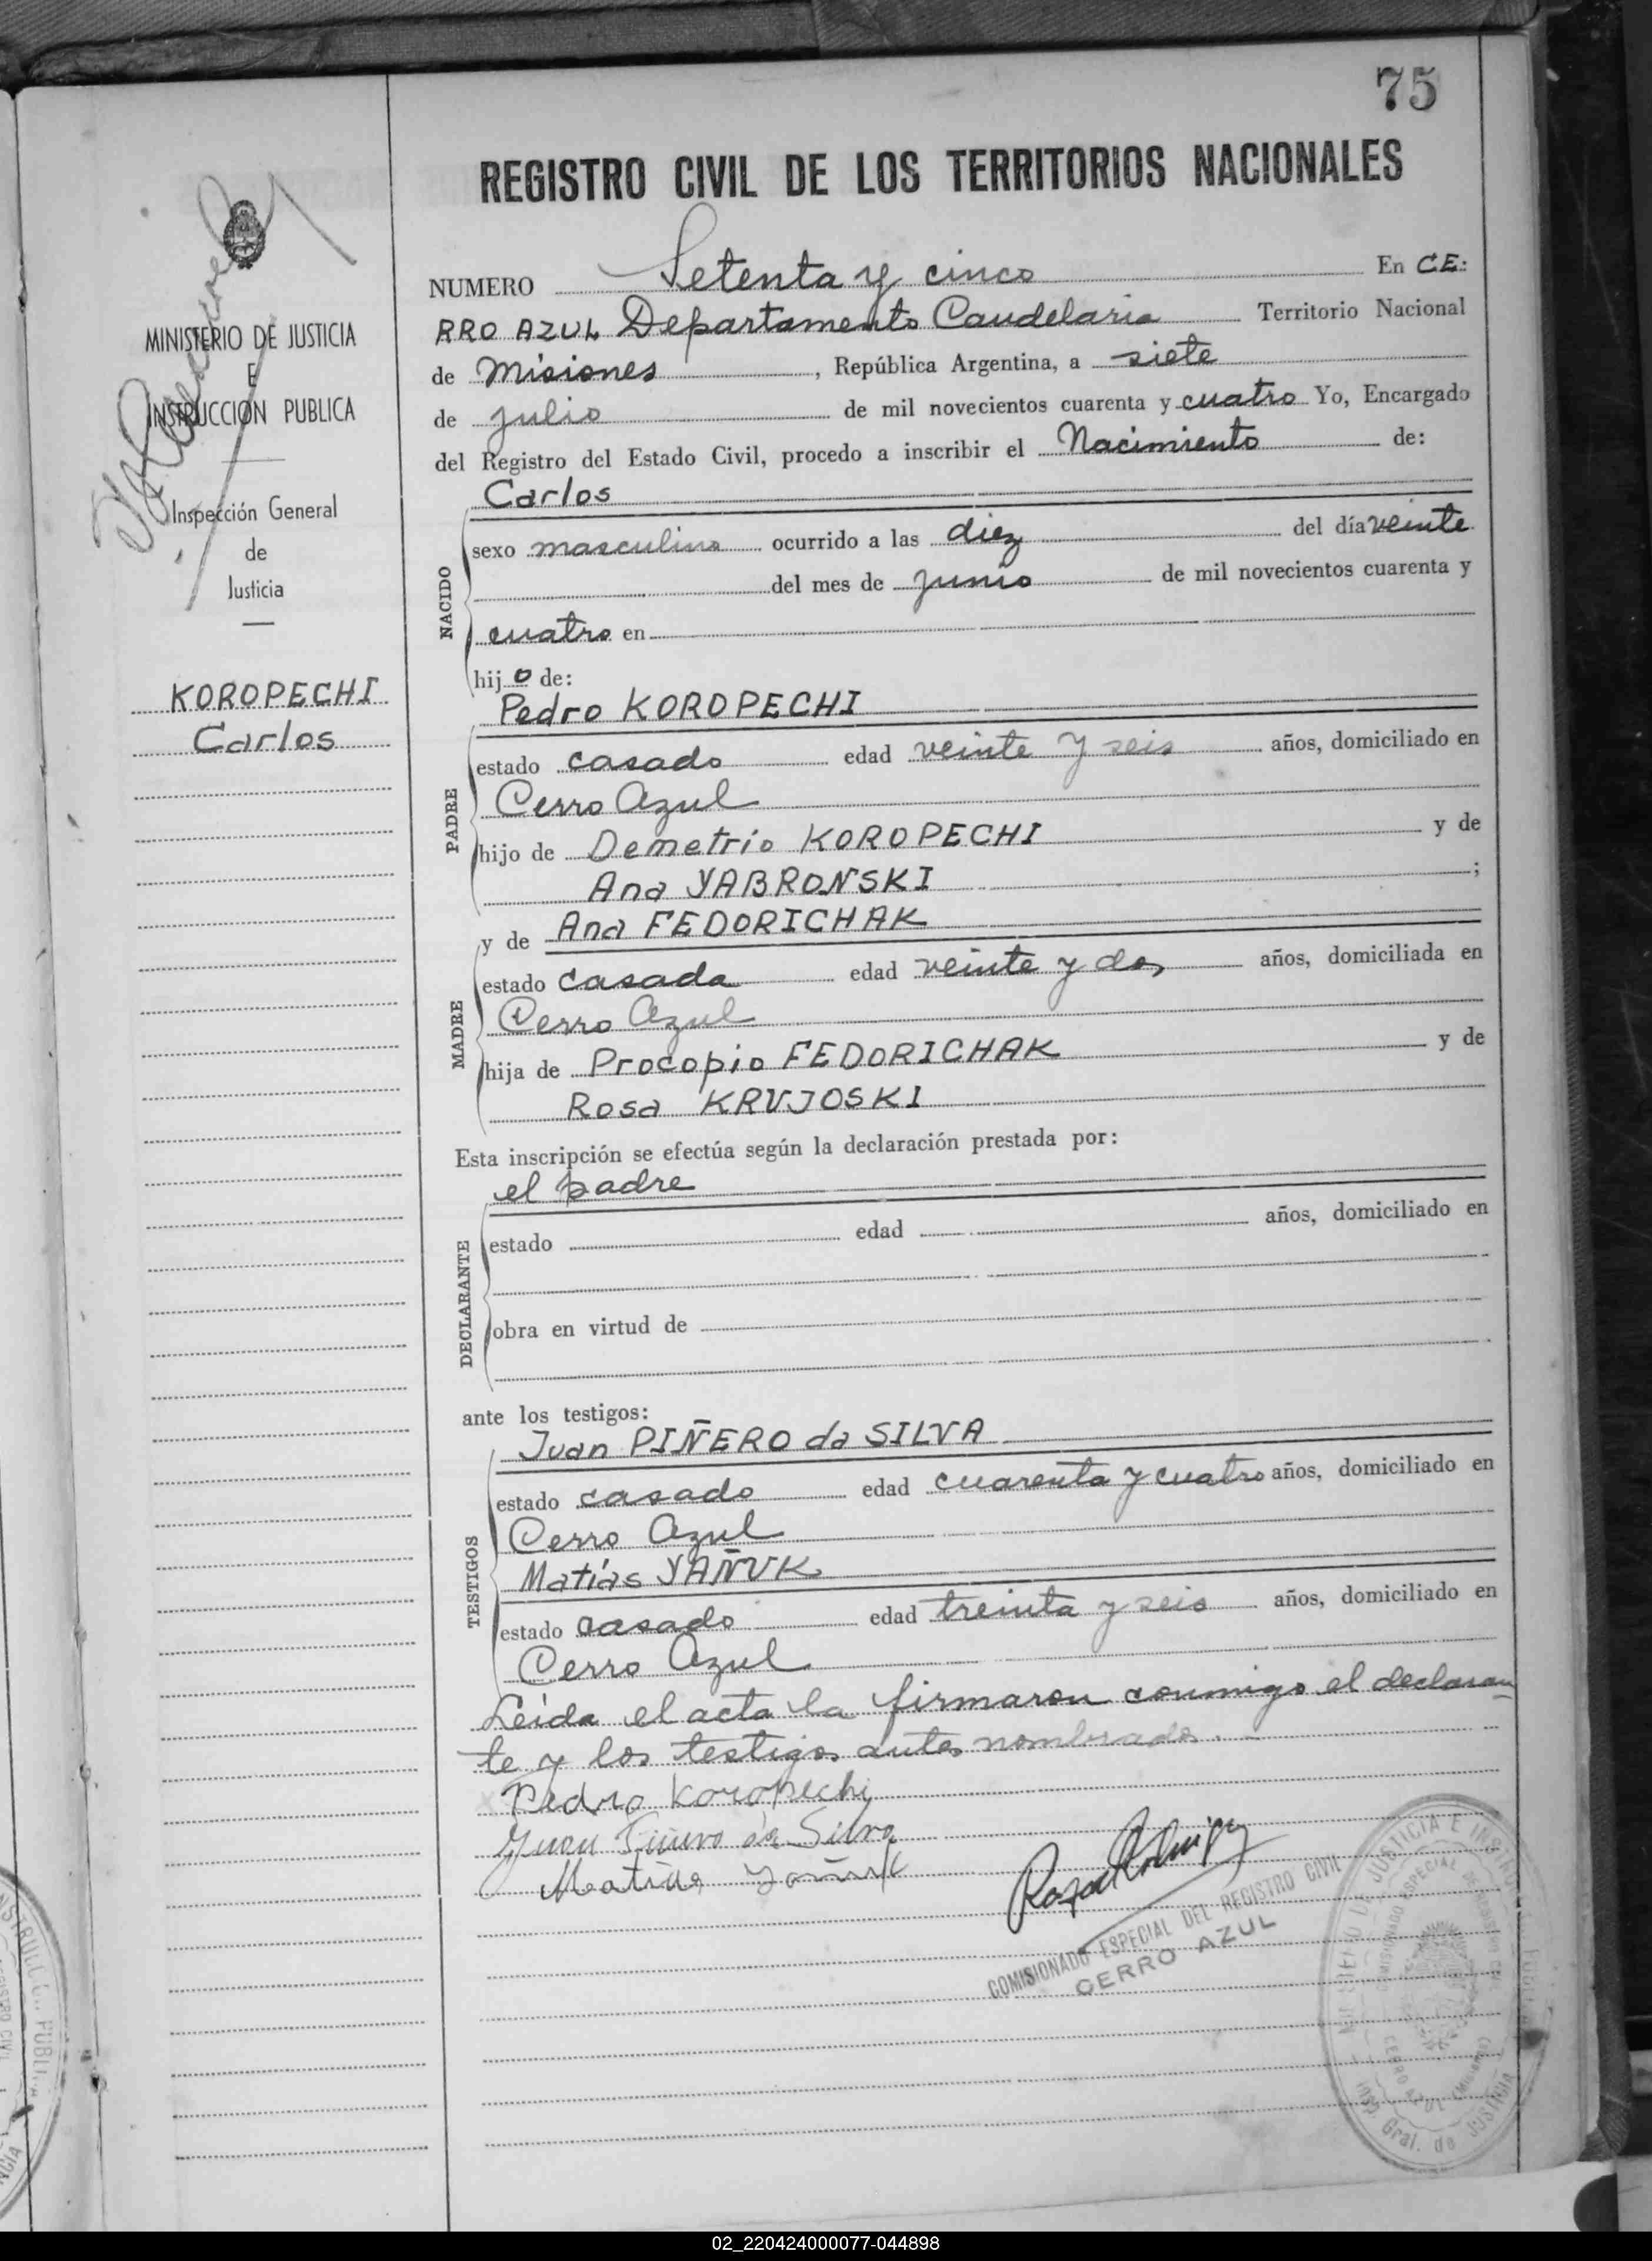 75
REGISTRO CIVIL DE LOS TERRITORIOS NACIONALES
MINISTERIO DE JUSTICIA
E
INSTRUCCION PUBLICA
Inspección General
de
Justicia
KOROPECHI
Carlos
NUMERO Setenta y cinco En CE:
RRO AZUL Departamento Candelaria Territorio Nacional
de Misiones, República Argentina, a siete
de julio de mil novecientos cuarenta y cuatro Yo, Encargado
del Registro del Estado Civil, procedo a inscribir el Nacimiento de:
Carlos
NACIDO
sexo masculino ocurrido a las diez del día veinte
del mes de junio de mil novecientos cuarenta y
cuatro en
hijo de:
Pedro KOROPECHI
PADRE
estado casado edad veinte y seis años, domiciliado en
Cerro Azul
hijo de Demetrio KOROPECHI y de
Ana YABRONSKI ;
y de Ana FEDORICHAK
MADRE
estado casada edad veinte y dos años, domiciliada en
Cerro Azul
hija de Procopio FEDORICHAK y de
Rosa KRUJOSKI
Esta inscripción se efectúa según la declaración prestada por:
el padre
DECLARANTE
estado edad años, domiciliado en
obra en virtud de
ante los testigos:
Juan PIÑERO da SILVA
TESTIGOS
estado casado edad cuarenta y cuatro años, domiciliado en
Cerro Azul
Matías YAÑUK
estado casado edad treinta y seis años, domiciliado en
Cerro Azul
Leida el acta la firmaron conmigo el declaran
te y los testigos antes nombrados.
Pedro Koropechi
Juan Piñero da Silva
Matias Yañuk
COMISIONADO ESPECIAL DEL REGISTRO CIVIL
CERRO AZUL
Insp. Gral. de JUSTICIA
CERRO AZUL (Misiones)
02_220424000077-044898